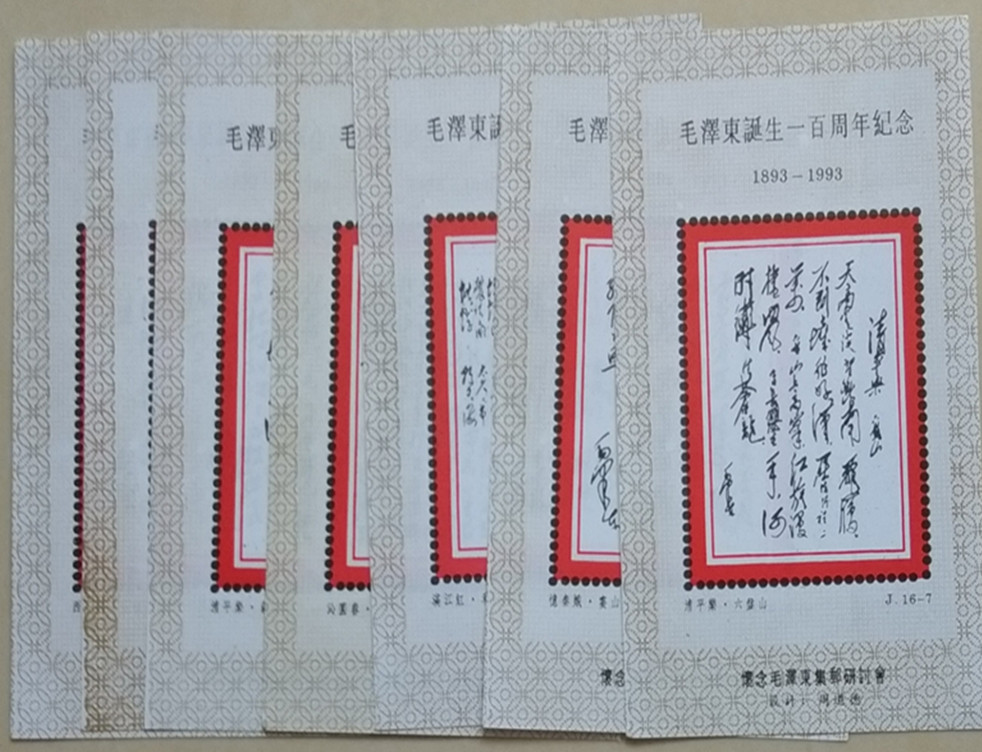 毛澤東
毛
毛澤東誕
毛澤
毛澤東誕生一百周年紀念
1893-1993
清平樂 六盤山
天高雲淡望斷南飛雁
不到長城非好漢屈指行程二
萬六盤山上高峰紅旗漫
捲西風今日長纓在手何
時縛住蒼龍
清平樂·
沁園春·
滿江紅·
憶秦娥·婁山
清平樂·六盤山
J.16-7
懷念
懷念毛澤東集郵研討會
設計：